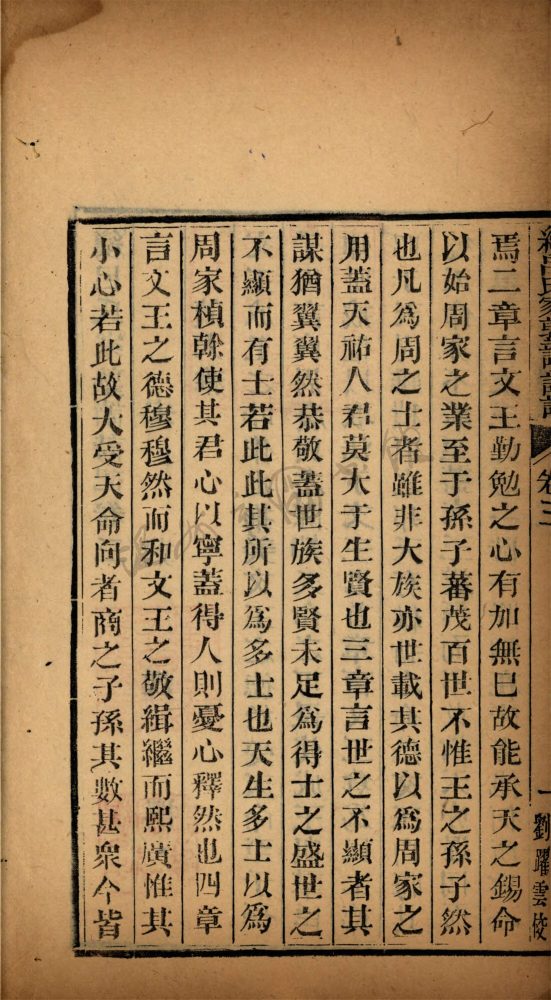 卷三
一
劉躍雲
焉二章言文王勤勉之心有加無已故能承天之錫命
以始周家之業至于孫子蕃茂百世不惟王之孫子然
也凡為周之士者雖非大族亦世載其德以為周家之
用蓋天祐人君莫大于生賢也三章言世之不顯者其
謀猶翼翼然恭敬蓋世族多賢未足為得士之盛世之
不顯而有士若此此其所以為多士也天生多士以為
周家楨榦使其君心以寧蓋得人則憂心釋然也四章
言文王之德穆穆然而和文王之敬緝繼而熙廣惟其
小心若此故大受天命向者商之子孫其數甚衆今皆